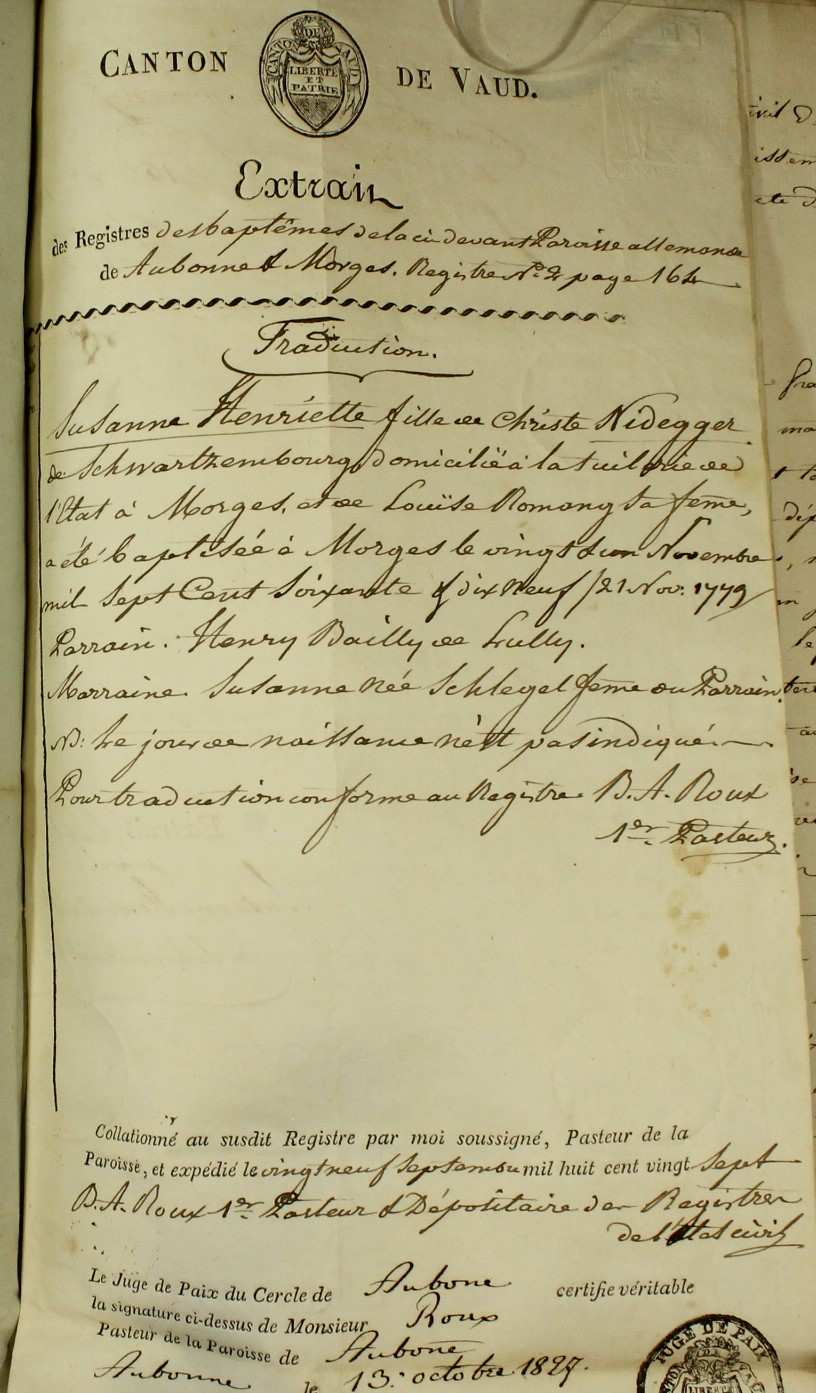 CANTON DE VAUD.
CANTON DE VAUD
LIBERTÉ
ET
PATRIE
Extrait
des Registres des baptêmes de la ci devant Paroisse allemande
de Aubonne & Morges. Registre N.o 2 page 164
Traduction.
Susanne Henriette fille de Christe Nidegger
de Schwartzembourg, domicilié à la tuilerie de
l'Etat à Morges, et de Louïse Romany sa feme,
a été baptisée à Morges le vingt & un Novembre
mil Sept Cent Soixante & dix neuf /21 Nov. 1779/
Parrain. Henry Bailly de Lully.
Marraine. Susanne née Schlegel feme du Parrain.
NB: Le jour de naissance n'est pas indiqué.
Pour traduction conforme au Registre. B. A. Roux
1er. Pasteur.
Collationné au susdit Registre par moi soussigné, Pasteur de la
Paroisse, et expédié le vingt neuf Septembre mil huit cent vingt Sept
B. A. Roux 1er. Pasteur & Dépositaire des Registres
de l'Etat civil
Le Juge de Paix du Cercle de Aubone certifie véritable
la signature ci-dessus de Monsieur Roux
Pasteur de la Paroisse de Aubone
Aubonne le 13. octobre 1827.
JUGE DE PAIX
CANTON
LIBERTÉ